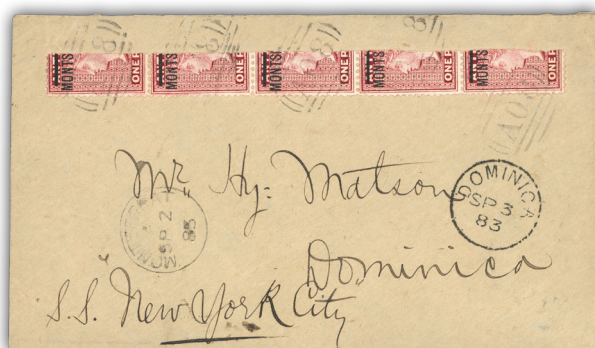 MONTS ONE MONTS ONE MONTS ONE MONTS ONE MONTS ONE
A08
Mr. Hy: Matson
DOMINICA
SP 3
83
MONT
SP 2
83
Dominica
"S.S. New York City